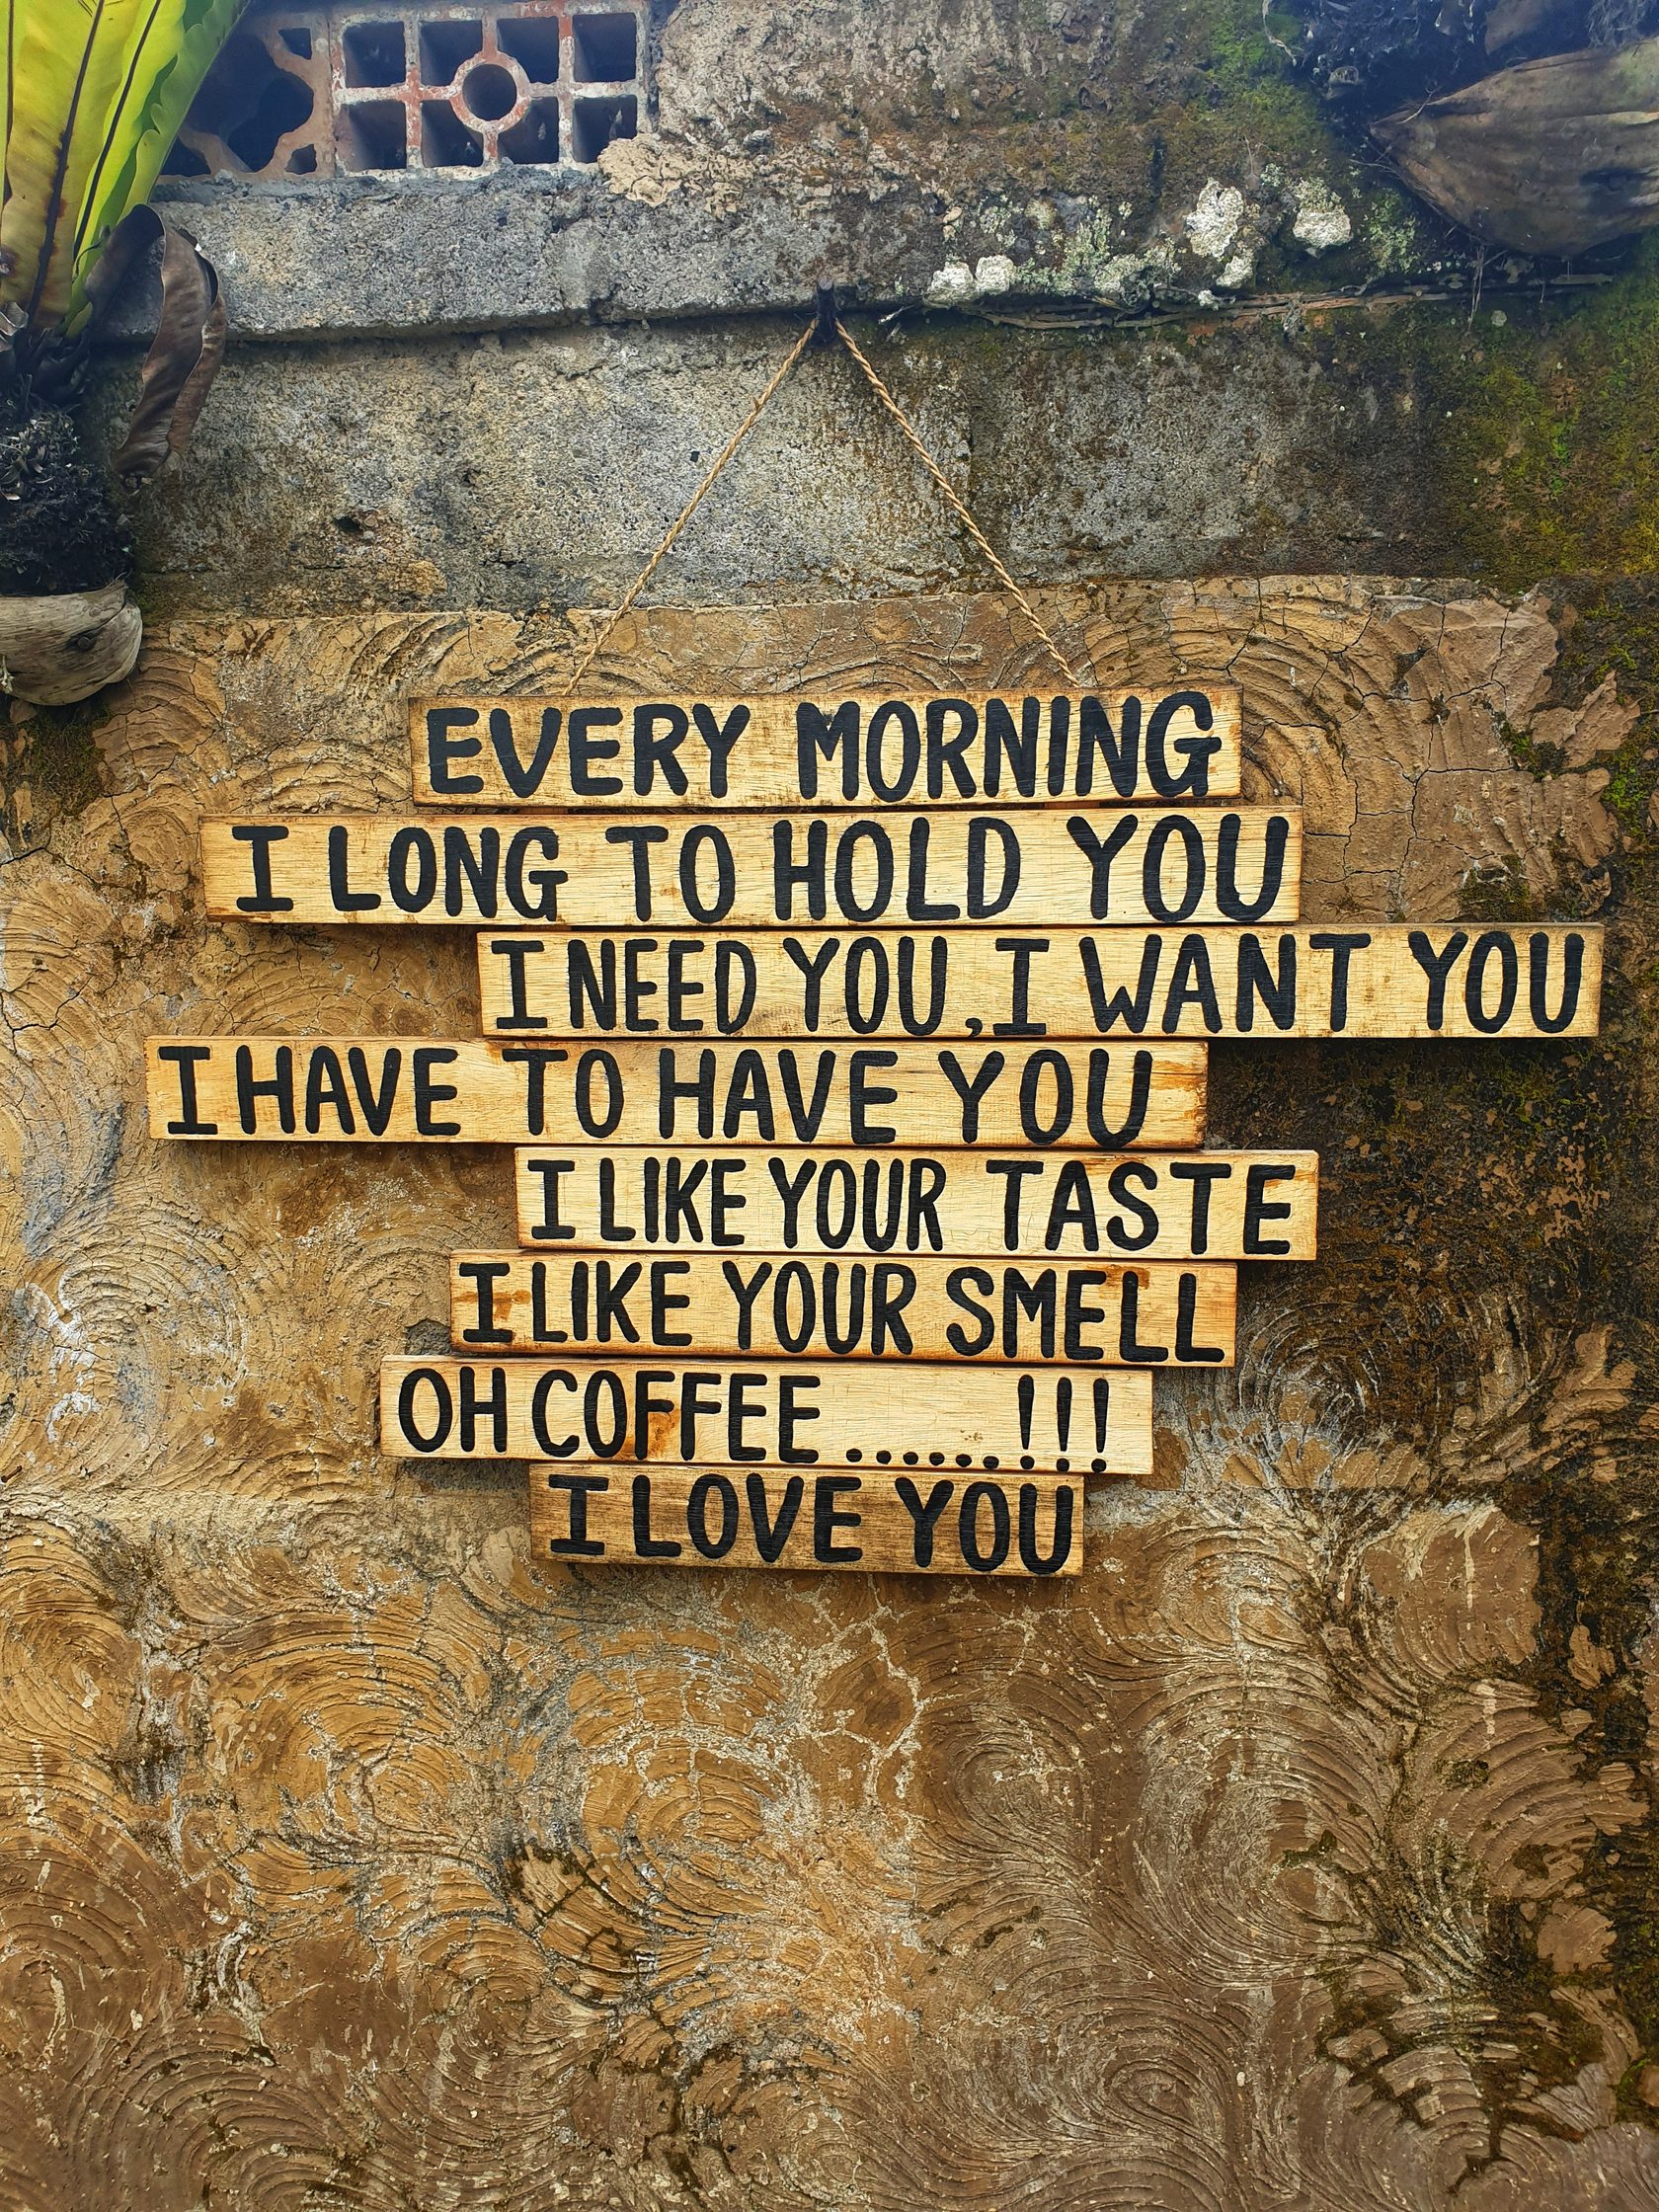 EVERY MORNING
I LONG TO HOLD YOU
I NEED YOU, I WANT YOU
I HAVE TO HAVE YOU
I LIKE YOUR TASTE
I LIKE YOUR SMELL
OH COFFEE ...... !!!
I LOVE YOU